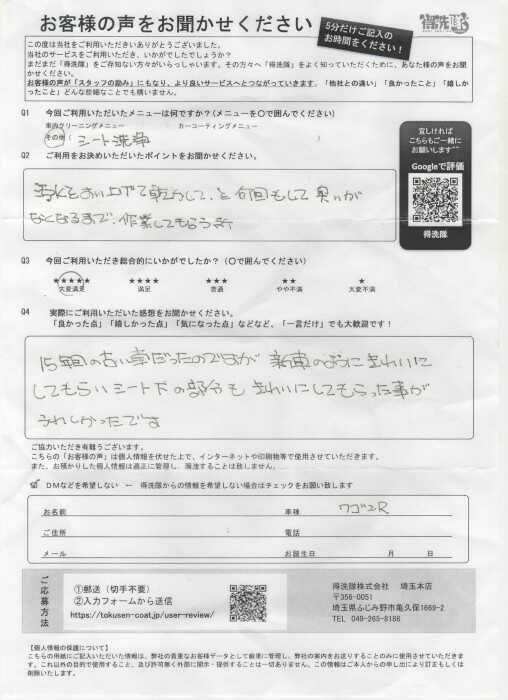 お客様の声をお聞かせください
5分だけご記入の
お時間をください!
得洗隊
この度は当社をご利用いただきありがとうございました。
当社のサービスをご利用いただき、いかがでしたでしょうか?
まだまだ「得洗隊」をご存知ない方々がいらっしゃいます。その方々へ「得洗隊」をよく知っていただくために、あなた様の声をお聞かせください。
お客様の声が「スタッフの励み」にもなり、より良いサービスへとつながっていきます。「他社との違い」「良かったこと」「嬉しかったこと」どんな些細なことでも構いません。
Q1 今回ご利用いただいたメニューは何ですか?(メニューを〇で囲んでください)
車内クリーニングメニュー カーコーティングメニュー
その他( シート洗浄 )
Q2 ご利用をお決めいただいたポイントをお聞かせください。
乾かして、と何回もして臭いが
なくなるまで、作業してもらう所
宜しければ
こちらもご一緒に
お願いします^^
Googleで評価
得洗隊
Q3 今回ご利用いただき総合的にいかがでしたか?(〇で囲んでください)
★★★★★ ★★★★ ★★★ ★★ ★
大変満足 満足 普通 やや不満 大変不満
Q4 実際にご利用いただいた感想をお聞かせください。
「良かった点」「嬉しかった点」「気になった点」などなど、「一言だけ」でも大歓迎です!
15年前の古い車だったのですが 新車のように きれいに
してもらい シート下の部分も きれいにしてもらった事が
うれしかったです
ご協力いただき有難うございます。
こちらの「お客様の声」は個人情報を伏せた上で、インターネットや印刷物等で使用させていただきます。
また、お預かりした個人情報は適正に管理し、漏洩することは致しません。
DMなどを希望しない ← 得洗隊からの情報を希望しない場合はチェックをお願い致します
お名前 車種 ワゴンR
ご住所 電話
メール お誕生日 月 日
ご応募方法
①郵送(切手不要)
②入力フォームから送信
https://tokusen-coat.jp/user-review/
得洗隊株式会社 埼玉本店
〒356-0051
埼玉県ふじみ野市亀久保1669-2
TEL 049-265-8186
【個人情報の保護について】
こちらの用紙にご記入いただいた情報は、弊社の貴重なお客様データとして厳重に管理し、弊社の案内をお送りすることのみに使用させていただきます。これ以外の目的で使用すること、及び許可無く外部に開示・提供することは一切ありません。この情報はご本人からの申し出により訂正もしくは削除いたします。